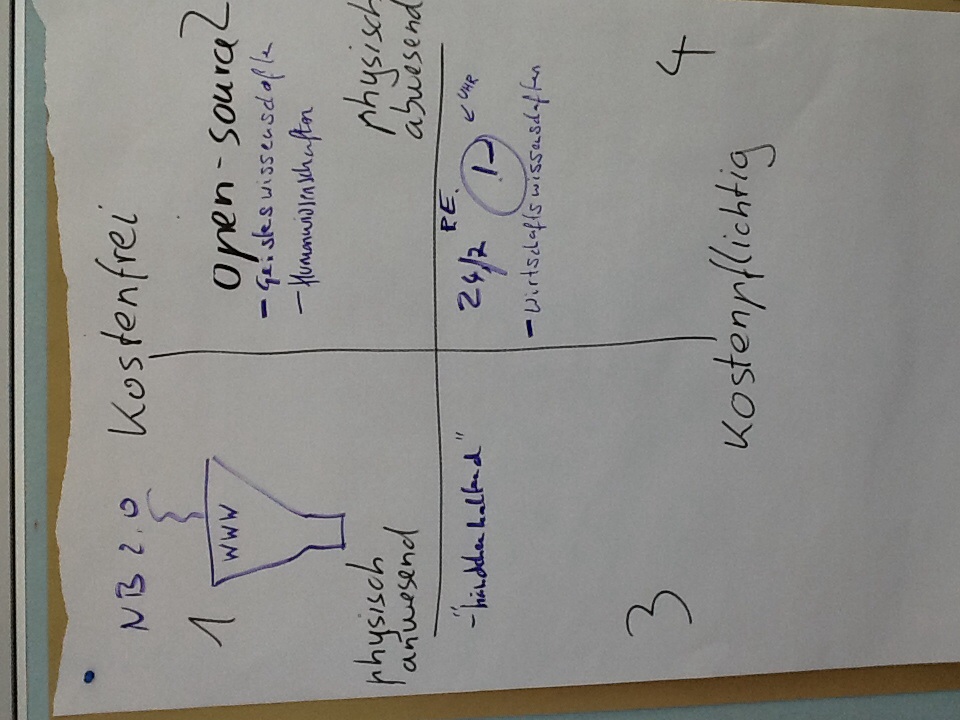 NB 2.0 Kostenfrei
1
2
WWW
open-source
- Geisteswissenschaften
- Humanwissenschaften
physisch
anwesend
physisch
abwesend
- "händchenhaltend"
24/7 P.E.
- Wirtschaftswissenschaften
3
4
Kostenpflichtig